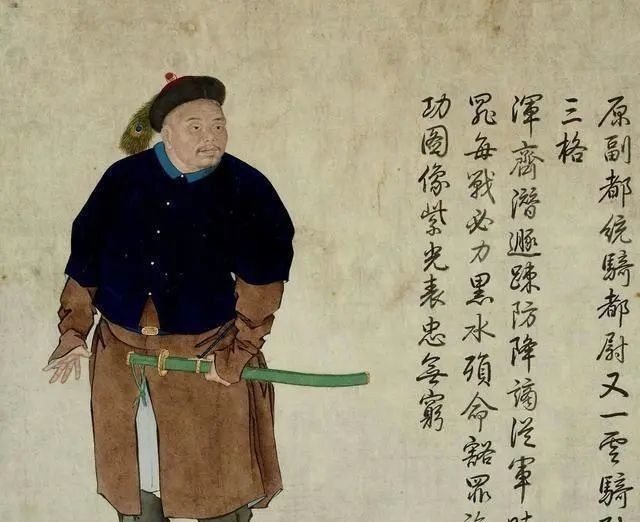 原副都統騎都尉又一雲騎
三格
渾齊潛遯踈防降謫從軍
罪每戰必力黑水殞命豁罪
功圖像紫光表忠無窮